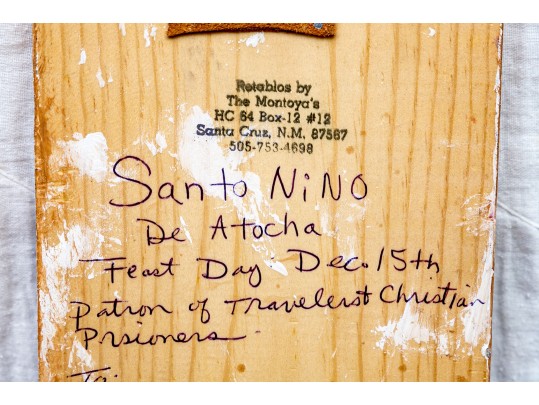 Retablos by
The Montoya's
HC 64 Box-12 #12
Santa Cruz, N.M. 87567
505-753-4698
Santo NiNO
De Atocha
Feast Day Dec. 15th
Patron of Travelerst Christian
Prsioners